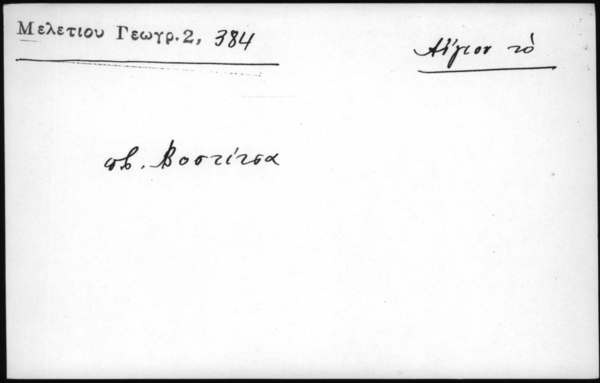 Μελετιου Γεωγρ.2, 384
Αἴγιον τὸ
πβ. Βοστίτσα